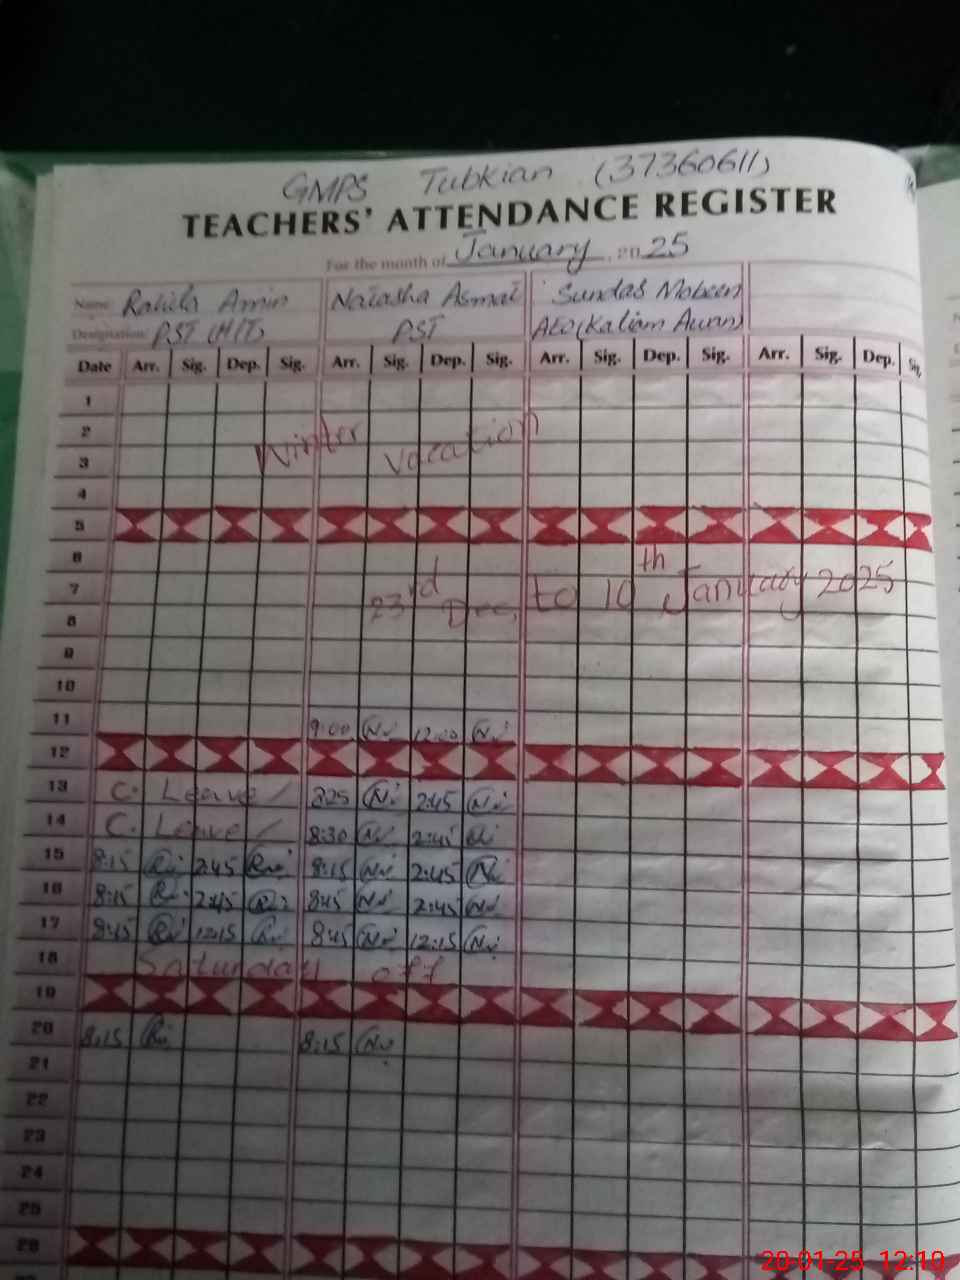 GMPS Tubkian (37360611)
TEACHERS' ATTENDANCE REGISTER
For the month of January, 2025
Name: Rahila Amin Natasha Asmat Sundas Mobeen
Designation: PST (H/T) PST AEO (Kallam Awan)
Date Arr. Sig. Dep. Sig. Arr. Sig. Dep. Sig. Arr. Sig. Dep. Sig. Arr. Sig. Dep. Sig.
1
2 Winter vacation
3
4
5
6
7 23rd Dec, to 10th January 2025
8
9
10
11 9:00 12:00
12
13 C. Leave / 2:45
14 C. Leave / 8:30 2:45
15 8:15 2:45 8:15 2:45
16 8:45 2:45 8:45 2:45
17 8:45 12:15 8:45 12:15
18 Saturday off
19
20 8:15 8:15
21
22
23
24
25
26
20-01-25 12:10